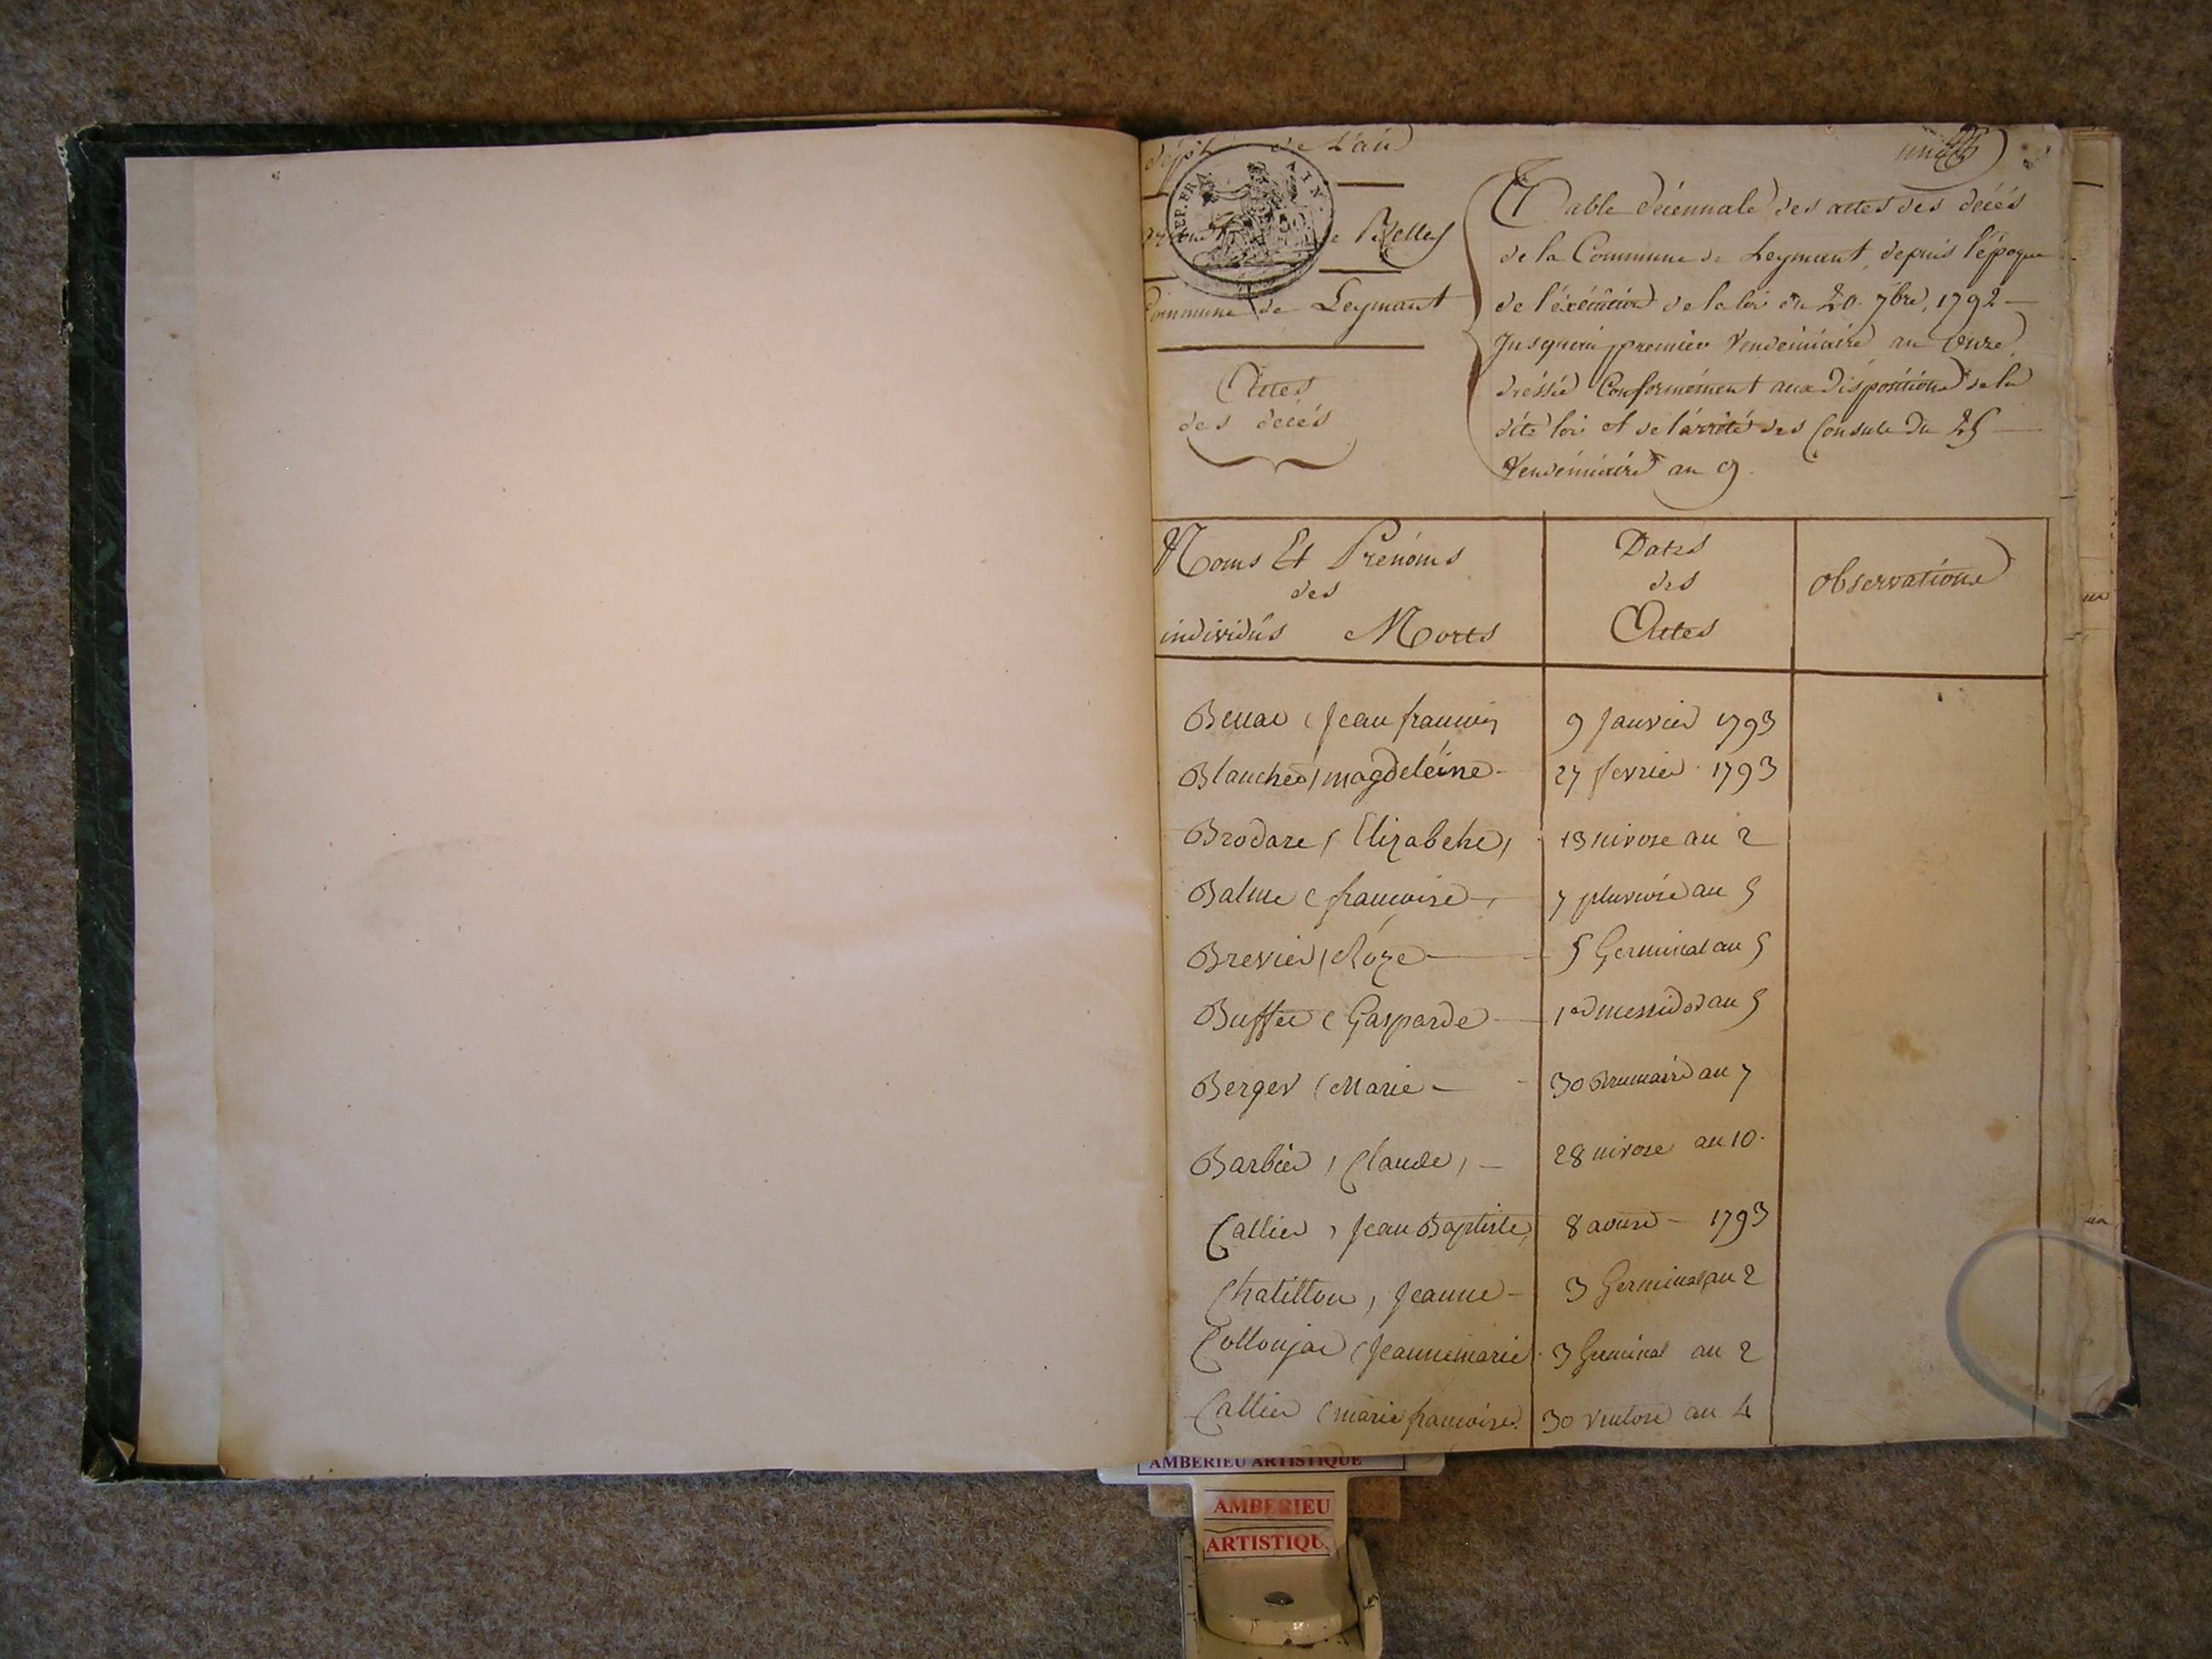 dépt de L'ain
REP. FRA. AIN.
de Belley
Commune de Leymant
Actes
des décés
Table décennale des actes des décés
de la Commune de Leymant, depuis l'époque
de l'éxécution de la loi du 20. 7bre, 1792 —
Jusqu'au premier Vendemiaire an Onze
dréssée Conformément aux dispositions de la
dite loi et de l'arrêté des Consuls du 25 —
Vendémiaire an 9.
Noms Et Prénoms
des
individús Morts
Dates
des
Actes
Observations
Jean francois 9 Janvier 1793
Blanchet, magdeleine - 27 fevrier 1793
Brodare, Elizabethe, 13 nivose an 2
Balme (francoise - 7 pluviose an 5
Brevier, Roze - 5 Germinal an 5
Buffet (Gasparde - 1er messidor an 5
Berger (Marie - 30 Brumaire an 7
Barbier, Claude, - 28 nivose an 10.
Callier, Jean Baptiste, 8 aoust - 1793
Chatillon, Jeanne - 3 Germinal an 2
Collonjat (Jeanne marie 3 Germinal an 2
Callier (marie francoise. 30 ventose an 4
AMBERIEU ARTISTIQUE
AMBERIEU
ARTISTIQU